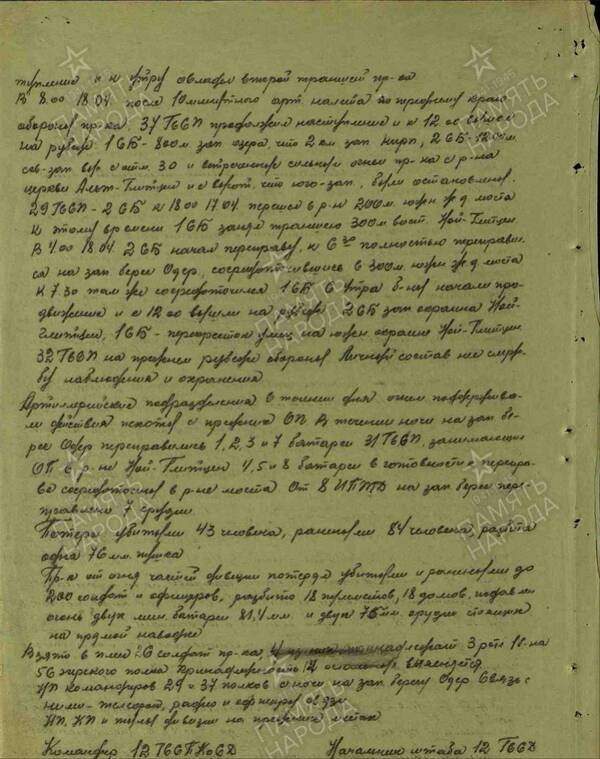 тупление и к утру овладел второй траншеей пр-ка
В 8.00 18.04 после 10 минутного арт. налета по переднему краю
обороны пр-ка 37 ГвСП продолжил наступление и к 12.00 вышел
на рубеж 1 СБ - 800 м зап. озера, что 2 км зап. 2 СБ - 1200 м
сев-зап. выс. с отм. 3.0 и встреченные сильным огнем пр-ка с р-на
церкви Альт-Глитцин и с высот, что юго-зап., были остановлены.
29 ГвСП - 2 СБ к 18.00 17.04 перешел в р-н 200 м южн. ж.д. моста
К этому времени 1 СБ занял траншею 300 м вост. Ной-Глитцин
В 4.00 18.04 2 СБ начал переправу, к 6.30 полностью переправил-
ся на зап. берег Одер, сосредоточившись в 300 м южн. ж.д. моста
К 7.30 там же сосредоточился 1 СБ. С утра б-ны начали про-
движение и к 12.00 вышли на рубеж 2 СБ зап. окраина Ной-
Глитцин, 1 СБ - перекресток улиц на южн. окраине Ной-Глитцин
32 ГвСП на прежнем рубеже обороны. Личный состав нес служ-
бу наблюдения и охранения
Артиллерийские подразделения в течении дня огнем поддержива-
ли действия пехоты с прежних ОП. В течении ночи на зап. бе-
рег Одер переправились 1, 2, 3 и 7 батареи 31 ГвСП, занимающие
ОП в р-не Ной-Глитцин. 4, 5 и 8 батареи в готовности к перепра-
ве сосредоточены в р-не моста. От 8 ИПТД на зап. берег пере-
правлено 7 орудий
Потери: убитыми 43 человека, ранеными 84 человека, разбита
одна 76 мм пушка
Пр-к от огня частей дивизии потерял убитыми и ранеными до
200 солдат и офицеров, разбито 18 пулеметов, 18 домов, подавлен
огонь двух мин. батарей 81,4 мм и двух 75 мм орудий стоящих
на прямой наводке
Взято в плен 26 солдат пр-ка,
56 полка. Принадлежность остальных выясняется
НП командиров 29 и 37 полков с ночи на зап. берегу Одер. Связь с
ними - телефон, радио и офицеры связи
НП, КП и тылы дивизии на прежних местах
Командир 12 ГвСПКоСД Начальник штаба 12 ГвСД
ПАМЯТЬ
НАРОДА